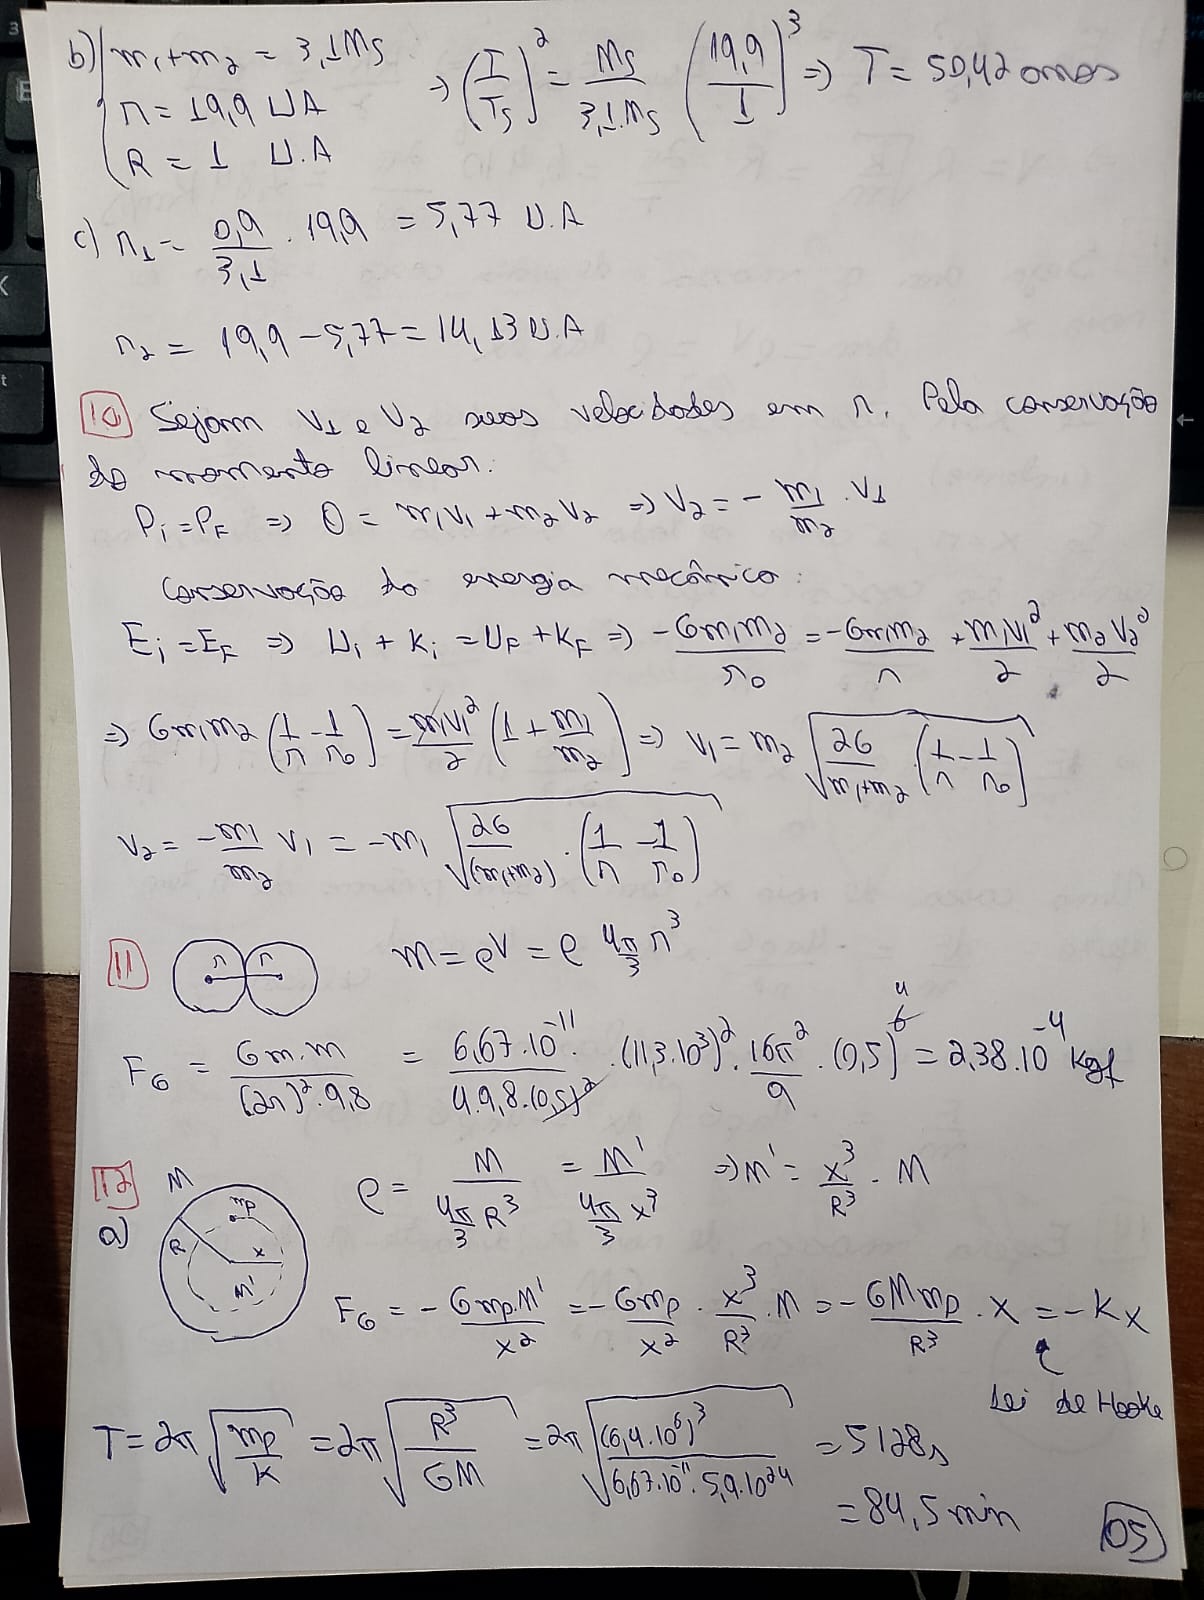 b) m₁+m₂ = 3,1Ms
r = 19,9 UA
R = 1 U.A
⇒ (T/Ts)² = Ms/3,1.Ms (19,9/1)³ ⇒ T = 50,42 anos
c) r₁ = 0,9/3,1 . 19,9 = 5,77 U.A
r₂ = 19,9 - 5,77 = 14,13 U.A
10 Sejam V₁ e V₂ suas velocidades em r. Pela conservação
do momento linear:
Pi = PF ⇒ 0 = m₁V₁ + m₂V₂ ⇒ V₂ = - m₁/m₂ . V₁
Conservação da energia mecânica:
Ei = EF ⇒ Ui + Ki = UF + KF ⇒ -Gm₁m₂/r₀ = -Gm₁m₂/r + m₁V₁²/2 + m₂V₂²/2
⇒ Gm₁m₂ (1/r - 1/r₀) = m₁V₁²/2 (1 + m₁/m₂) ⇒ V₁ = m₂ √(2G/(m₁+m₂) (1/r - 1/r₀))
V₂ = -m₁/m₂ V₁ = -m₁ √(2G/(m₁+m₂) . (1/r - 1/r₀))
11 r r m = ρV = ρ 4π/3 r³
FG = Gm.m/((2r)².9,8) = 6,67.10⁻¹¹/(4.9,8.(0,5)²) . (11,3.10³)² . 16π²/9 . (0,5)⁶ ⁴ = 2,38.10⁻⁴ Kgf
12
a) M mp R x M'
ρ = M/(4π/3 R³) = M'/(4π/3 x³) ⇒ M' = x³/R³ . M
FG = - Gmp.M'/x² = - Gmp/x² . x³/R³ . M = - GMmp/R³ . x = -Kx
Lei de Hooke
T = 2π √(mp/K) = 2π √(R³/GM) = 2π √((6,4.10⁶)³/(6,67.10⁻¹¹.5,9.10²⁴)) = 5128s
= 84,5 min
05